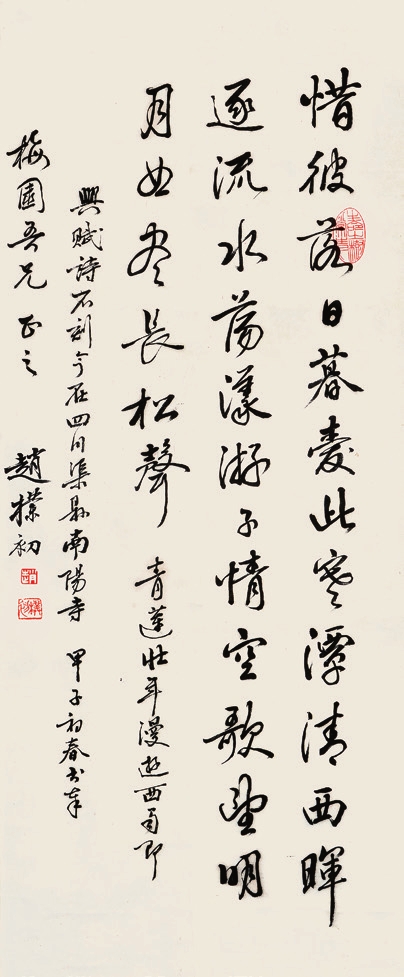 惜彼落日暮爱此寒潭清西暉
逐流水荡漾游子情空歌望明
月曲尽長松聲 青蓮壮年漫遊西蜀即
興賦詩石刻今在四川渠縣南陽寺 甲子初春书奉
梅園吾兄正之 趙樸初